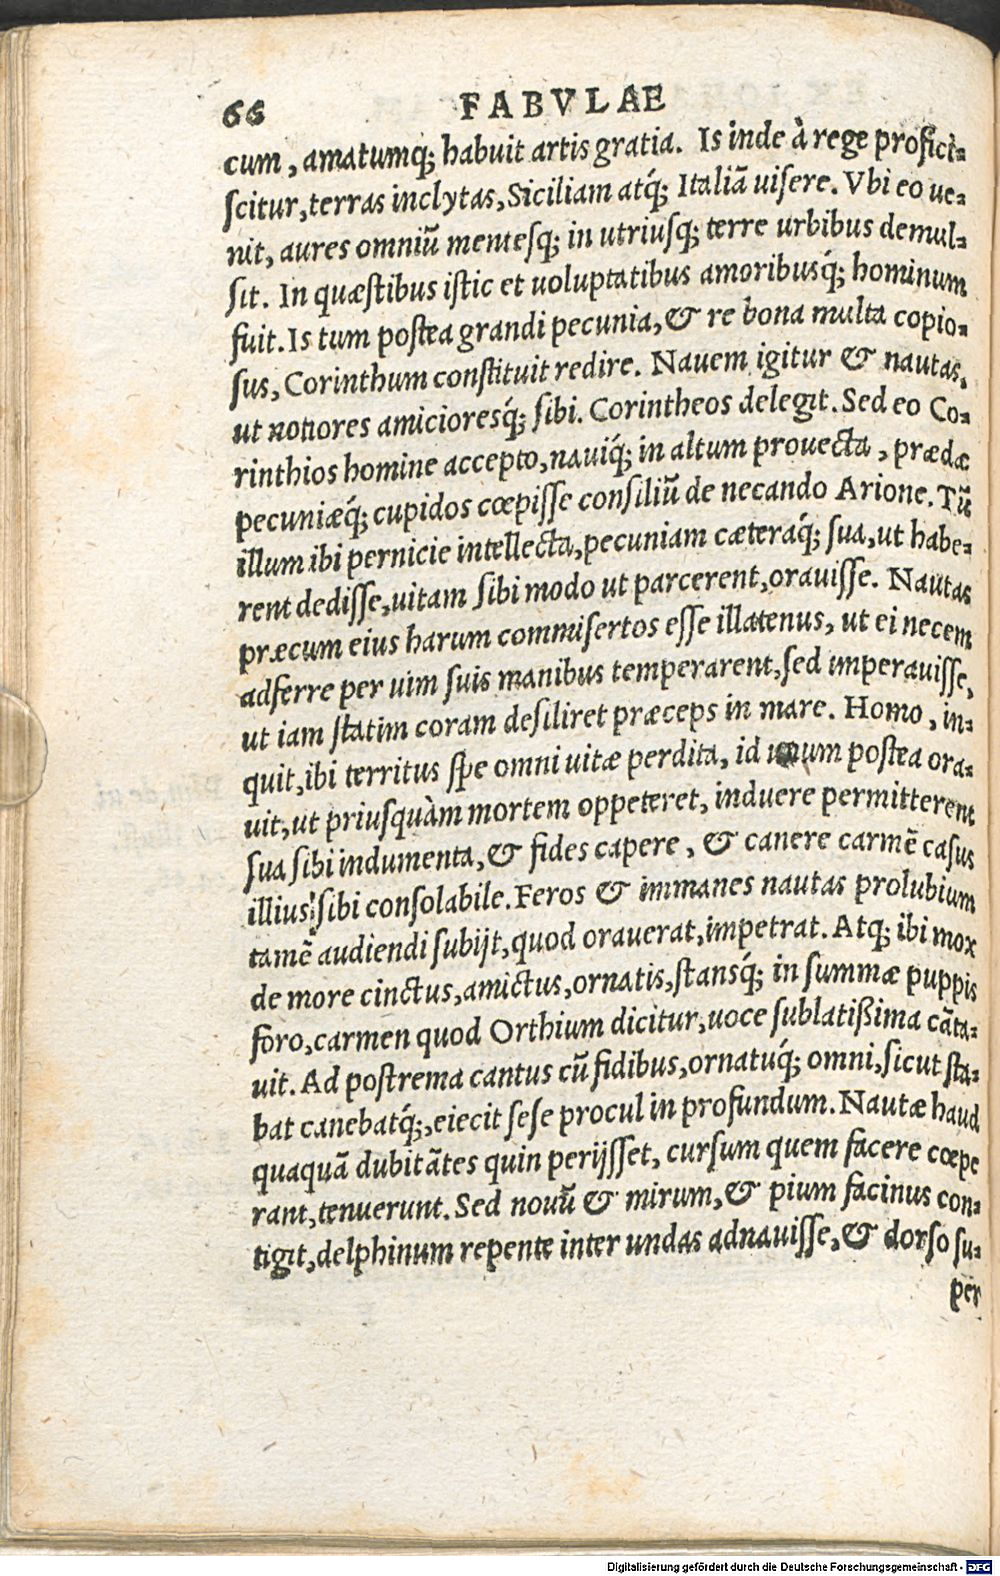 66 FABVLAE
cum, amatumq́; habuit artis gratia. Is inde à rege profici-
scitur, terras inclytas, Siciliam atq́; Italiã uisere. Vbi eo ue-
nit, aures omniũ mentesq; in utriusq; terre urbibus demul-
sit. In quæstibus istic et uoluptatibus amoribusq́; hominum
fuit. Is tum postea grandi pecunia, & re bona multa copio-
sus, Corinthum constituit redire. Nauem igitur & nautas,
ut notiores amicioresq́; sibi. Corintheos delegit. Sed eo Co-
rinthios homine accepto, nauiq́; in altum prouecta, prædæ
pecuniæq́; cupidos cœpisse consiliũ de necando Arione. Tũ
illum ibi pernicie intellecta, pecuniam cæteraq́; sua, ut habe-
rent dedisse, uitam sibi modo ut parcerent, orauisse. Nautas
præcum eius harum commisertos esse illatenus, ut ei necem
adferre per uim suis manibus temperarent, sed imperauisse,
ut iam statim coram desiliret præceps in mare. Homo, in-
quit, ibi territus spe omni uitæ perdita, id unum postea ora-
uit, ut priusquàm mortem oppeteret, induere permitterent
sua sibi indumenta, & fides capere, & canere carmẽ casus
illius sibi consolabile. Feros & immanes nautas prolubium
tamẽ audiendi subijt, quod orauerat, impetrat. Atq; ibi mox
de more cinctus, amictus, ornatis, stansq́; in summæ puppis
foro, carmen quod Orthium dicitur, uoce sublatißima cãta-
uit. Ad postrema cantus cũ fidibus, ornatuq́; omni, sicut sta-
bat canebatq́;, eiecit sese procul in profundum. Nautæ haud
quaquã dubitãtes quin perijsset, cursum quem facere cœpe
rant, tenuerunt. Sed nouũ & mirum, & pium facinus con-
tigit, delphinum repente inter undas adnauisse, & dorso su-
per
Digitalisierung gefördert durch die Deutsche Forschungsgemeinschaft - DFG